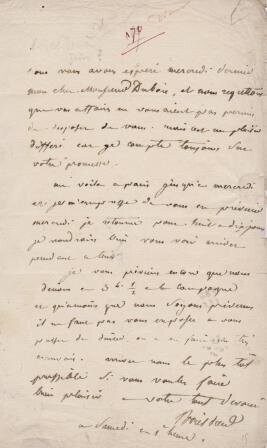 170
nous vous avons espéré mercredi dernier
mon cher Monsieur Dubois, et nous regrettons
que vos affaires ne vous aient pas permis
de disposer de vous. mais c'est un plaisir
différé car je compte toujours sur
votre promesse.
me voila a paris jusqu'a mercredi
et je m'empresse de vous en prévenir
mercredi je retourne pour huit a dix jours
je voudrais bien vous voir arriver
pendant ce tems
je vous préviens encore que nous
dinons a 3 h ½ a la campagne
et qu'a moins que nous soyons prévenus
il ne faut pas vous exposer a vous
passer de diner, ou a en faire un très
mauvais. arrivez nous le plus tôt
possible si vous voulez faire
bien plaisir a votre tout dévoué
Boisdard
ce Samedi